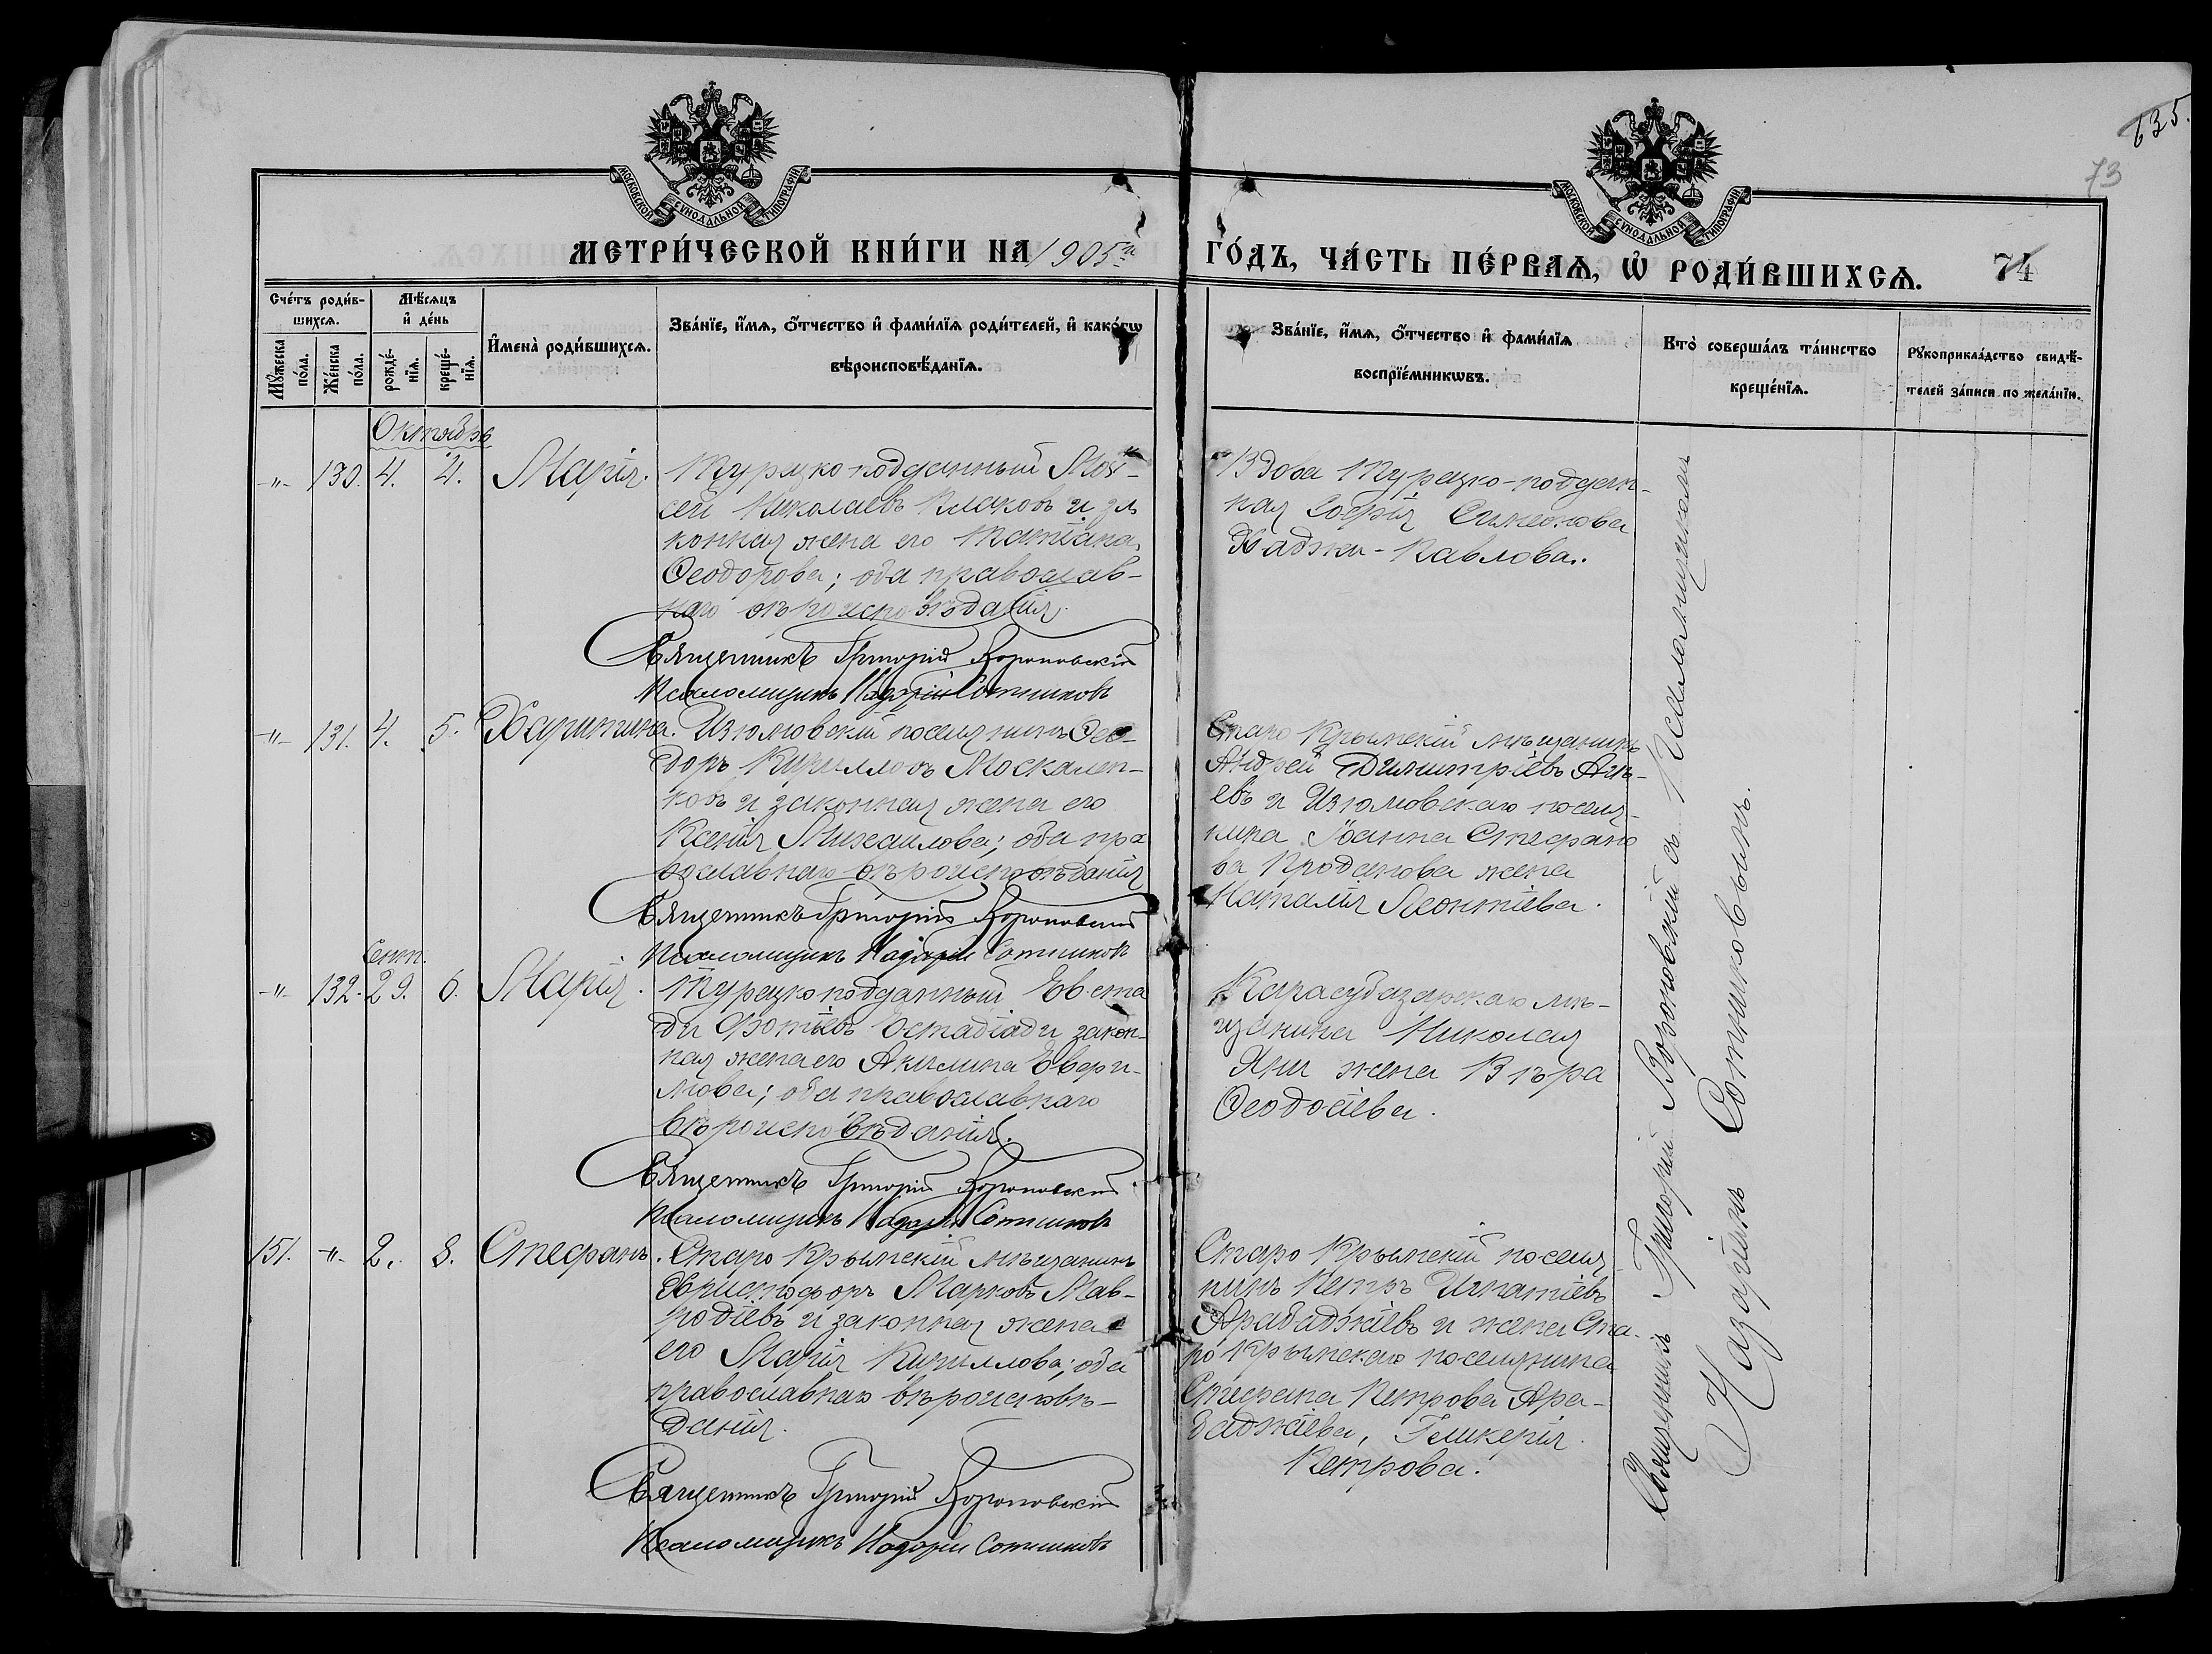 635.
73
МОСКОВСКОЙ СѴНОДАЛЬНОЙ ТИПОГРАФІИ
МОСКОВСКОЙ СѴНОДАЛЬНОЙ ТИПОГРАФІИ
МЕТРИ́ЧЕСКОЙ КНИ́ГИ НА 1905й
ГО́ДЪ, ЧА́СТЬ ПЕ́РВАѦ, Ѡ҆ РОДИ́ВШИХСѦ.
74
Сче́тъ роди́вшихсѧ.
Мꙋ́жеска по́ла.
Же́нска по́ла.
Мѣ́сѧцъ и҆ де́нь
рожде́нїѧ.
креще́нїѧ.
И҆мена̀ роди́вшихсѧ.
Зва́нїе, и҆́мѧ, ѻ҆́тчество и҆ фами́лїѧ роди́телей, и҆ како́гѡ
вѣроисповѣ́данїѧ.
Зва́нїе, и҆́мѧ, ѻ҆́тчество и҆ фами́лїѧ
воспрїе́мникѡвъ.
Кто̀ соверша́лъ та́инство
креще́нїѧ.
Рꙋкоприкла́дство свидѣ́-
телей за́писи по жела́нїю.
Октябрь
-"- 130. 4. 4. Марія.
Турецко-подданный Мои-
сей Николаевъ Клаковъ и за
конная жена его Татіана
Ѳеодорова; оба православ-
наго вѣроисповѣданія.
Священникъ Григорій Вороновскій
Псаломщикъ Назарій Сотниковъ
Вдова Турецко-поддан-
ная Софія Симеонова
Хаджи-Павлова.
-"- 131. 4. 5. Харитина.
Изюмовскій поселянинъ Ѳео-
доръ Кирилловъ Москален-
ковъ и законная жена его
Ксенія Михаилова; оба пра
вославнаго вѣроисповѣданія
Священникъ Григорій Вороновскій
Псаломщикъ Назарій Сотниковъ
Старо Крымскій мѣщанинъ
Андрей Димитріевъ
евъ и Изюмовскаго поселя-
нина Іоанна Стефано
ва Проданова жена
Наталія Леонтіева.
Сент.
-"- 132. 29. 6. Марія.
Турецко подданный Евста
ди Фотіевъ Естадіади закон-
ная жена его Акилина
мова; оба православнаго
вѣроисповѣданія.
Священникъ Григорій Вороновскій
Псаломщикъ Назарій Сотниковъ
Карасубазарскаго мѣ-
щанина Николая
Яни жена Вѣра
Ѳеодосіева.
151. -"- 2. 8. Стефанъ.
Старо Крымскій мѣщанинъ
Христофоръ Марковъ Мав-
родіевъ и законная жена
его Марія Кириллова; оба
православнаго вѣроисповѣ-
данія.
Священникъ Григорій Вороновскій
Псаломщикъ Назарій Сотниковъ
Старо Крымскій поселя
нинъ Петръ Игнатіевъ
Арабаджіевъ и жена Ста-
ро Крымскаго поселянина
Стефана Петрова Ара-
баджіева, Гликерія
Петрова.
Священникъ Григорій Вороновскій съ Псаломщикомъ
Назаріемъ Сотниковымъ.